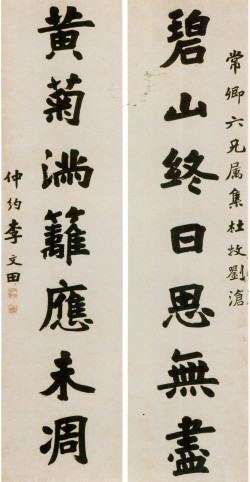 常卿六兄属集杜牧劉滄
碧山終日思無盡
黃菊滿籬應未凋
仲約李文田